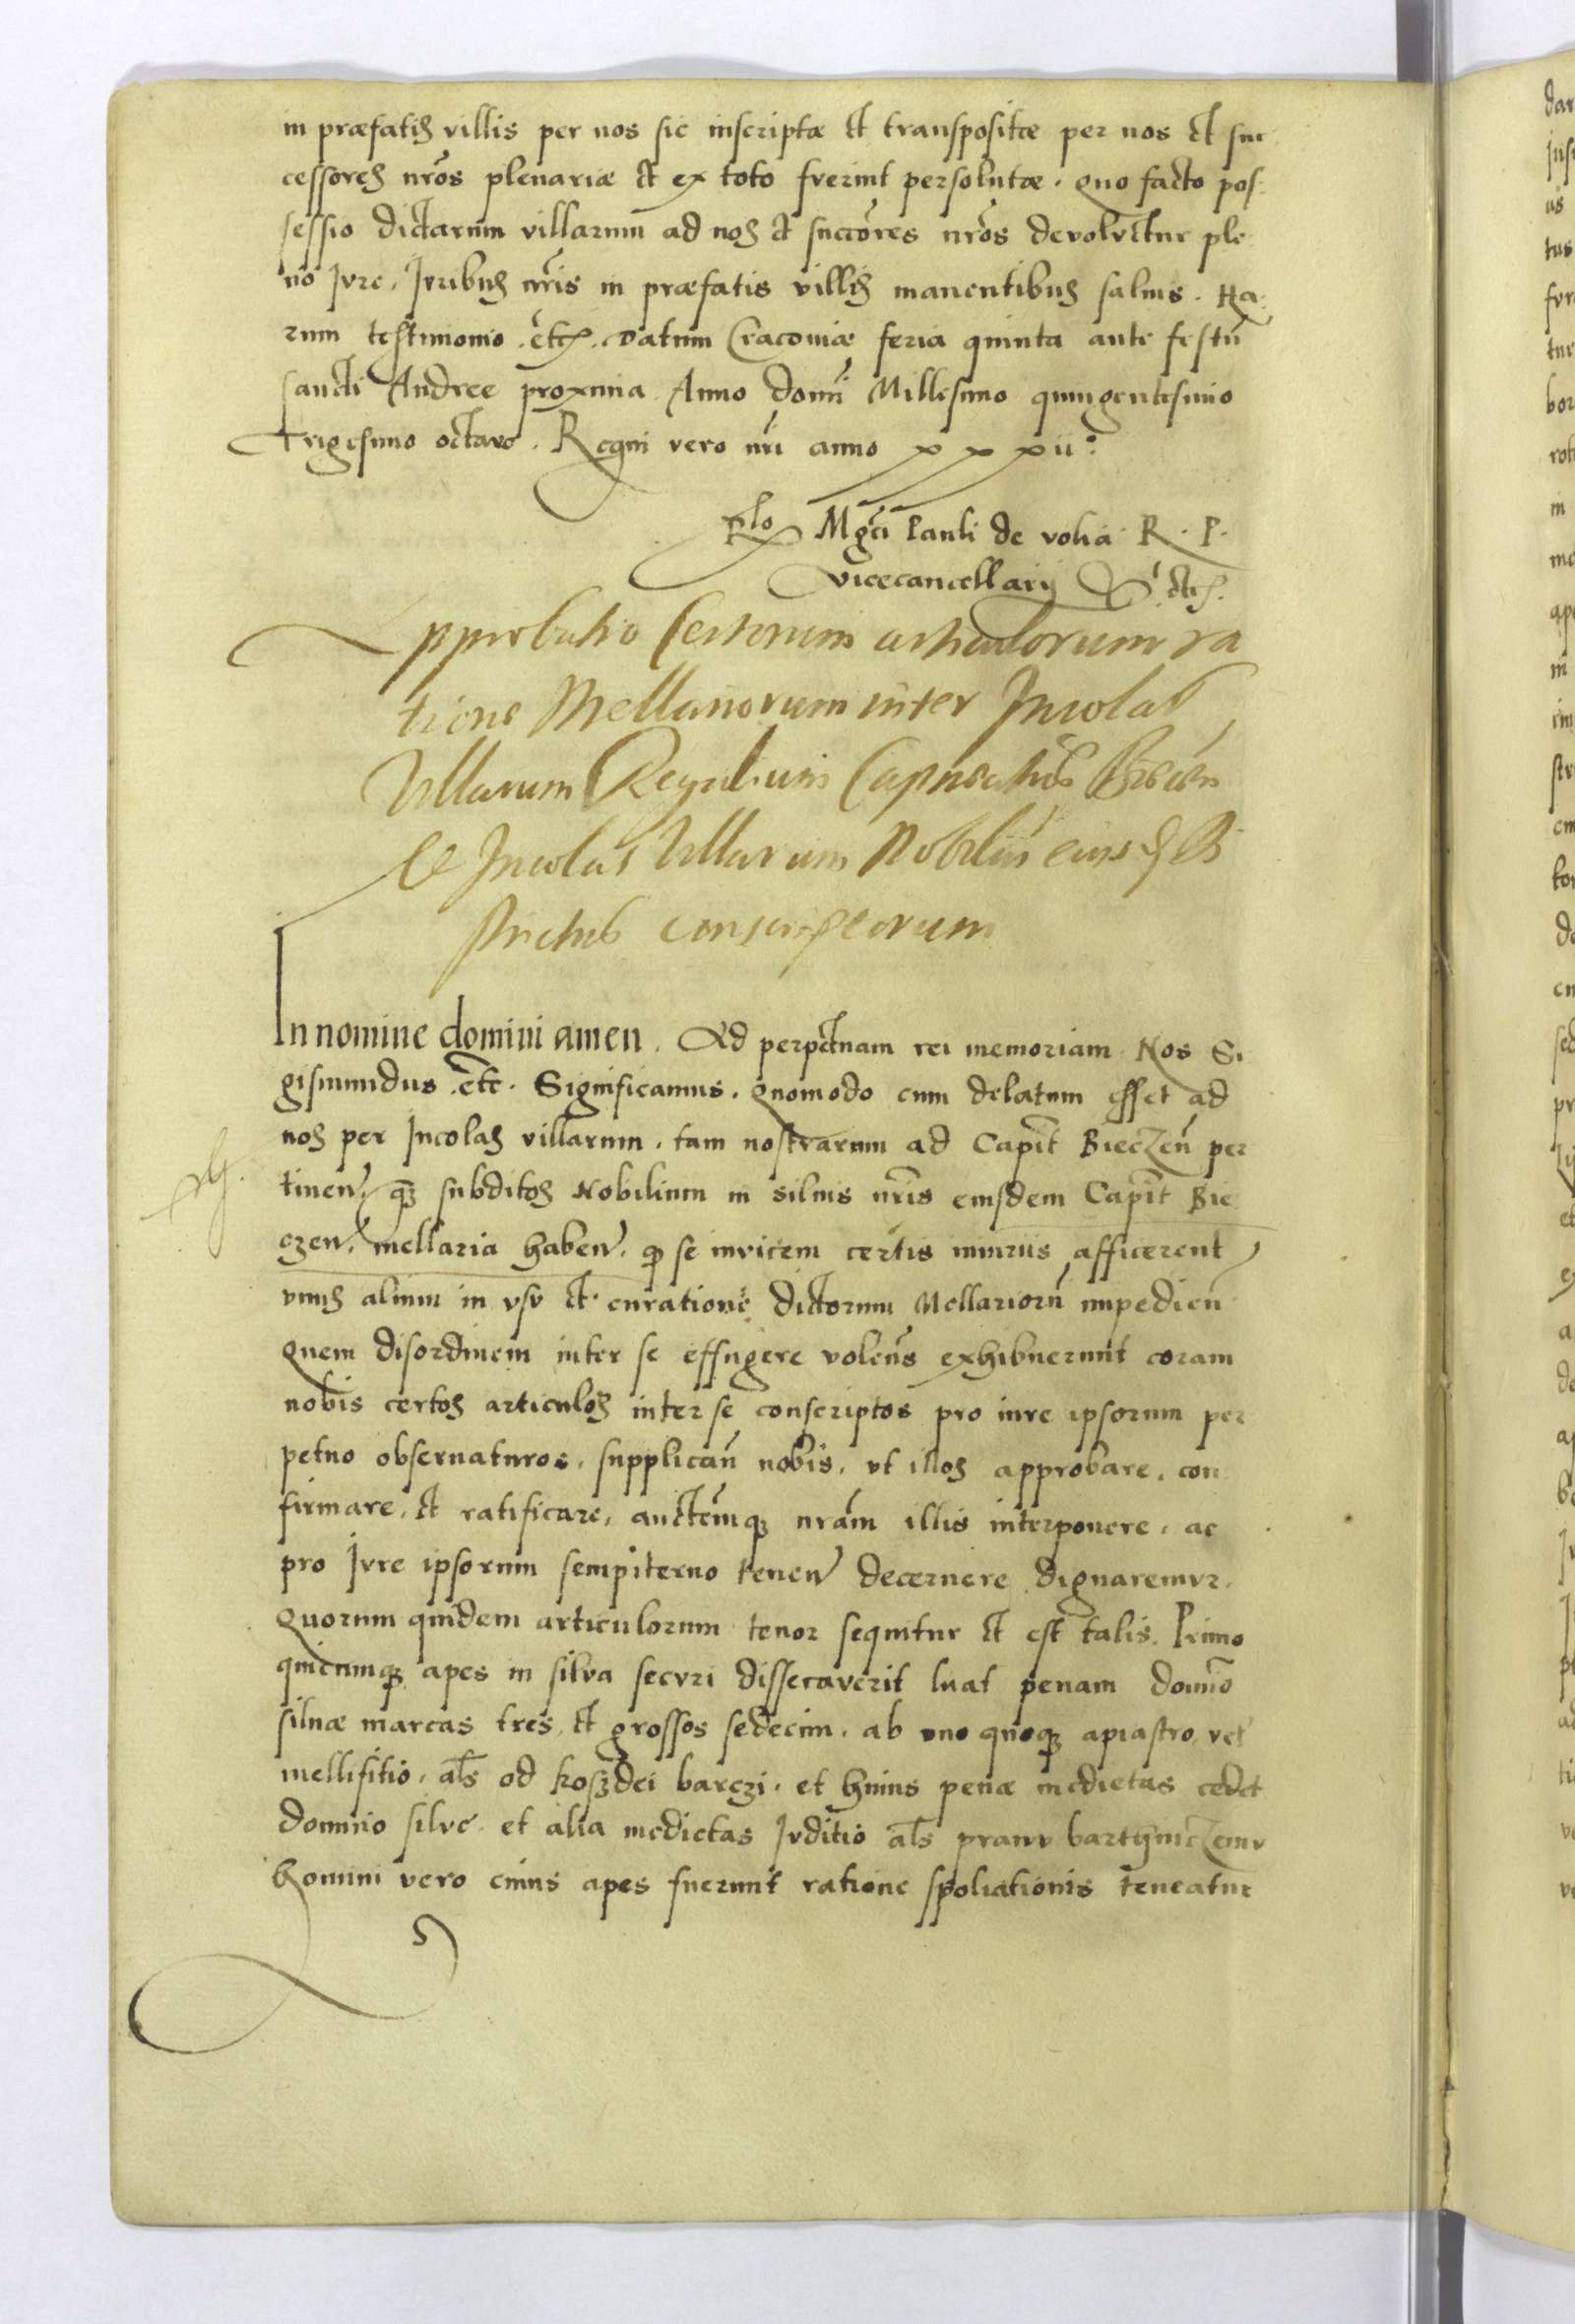 in præfatis villis per nos sic inscriptæ et transpositæ per nos et suc
cessores nros plenariæ et ex toto fverint persolutæ. quo facto pos:
sessio dictarum villarum ad nos et succores nros devolvetur ple
no Jvre, Jvribus nris in præfatis villis manentibus saluis. Ha:
rum testimonio .etc. Datum Cracoviæ feria quinta ante festu
sancti Andree proxima Anno domi Millesimo quingentesimo
Trigesimo octavo. Regni vero nri anno xxxii:
Rlo Mgci Pauli de volia R. P.
vicecancellarij etc.
Approbatio Certorum articulorum ra
tione Mellariorum inter Incolas
Villarum Regalium Capneatus Biecen
et Incolas Villarum Nobiliu eiusd Di
strictus conscriptorum
In nomine domini amen. Ad perpetuam rei memoriam Nos Si
gismundus .etc. Significamus. quomodo cum delatum esset ad
nos per Incolas villarum, tam nostrarum ad Capit Bieczen per
tinen, q subditos Nobilium in siluis nris eiusdem Capit Bie
czen, mellaria haben. q se invicem certis iniuriis afficerent
vnus alium in vsv et curatione dictorum Mellarioru impedien
quem disordinem inter se effugere volens exhibuerunt coram
nobis certos articulos inter se conscriptos pro iure ipsorum per
petuo obseruaturos, supplican nobis, vt illos approbare, con
firmare, et ratificare, auctemq nram illis interponere, ac
pro Jvre ipsorum sempiterno tenen decernere dignaremvr.
quorum quidem articulorum tenor sequitur et est talis. Primo
quicumq apes in silva secvri dissecaverit luat penam domino
siluæ marcas tres et grossos sedecim. ab vno quoq apiastro vel
mellifitio, als od koszdei barczi. et huius penæ medietas cedet
domino silve et alia medietas Jvditio als pranv barthniczemv
Homini vero cuius apes fuerunt ratione spoliationis teneatur